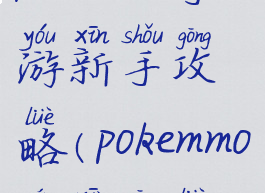 yóu xīn shǒu gōng
游新手攻
lüè
略(pokemmo